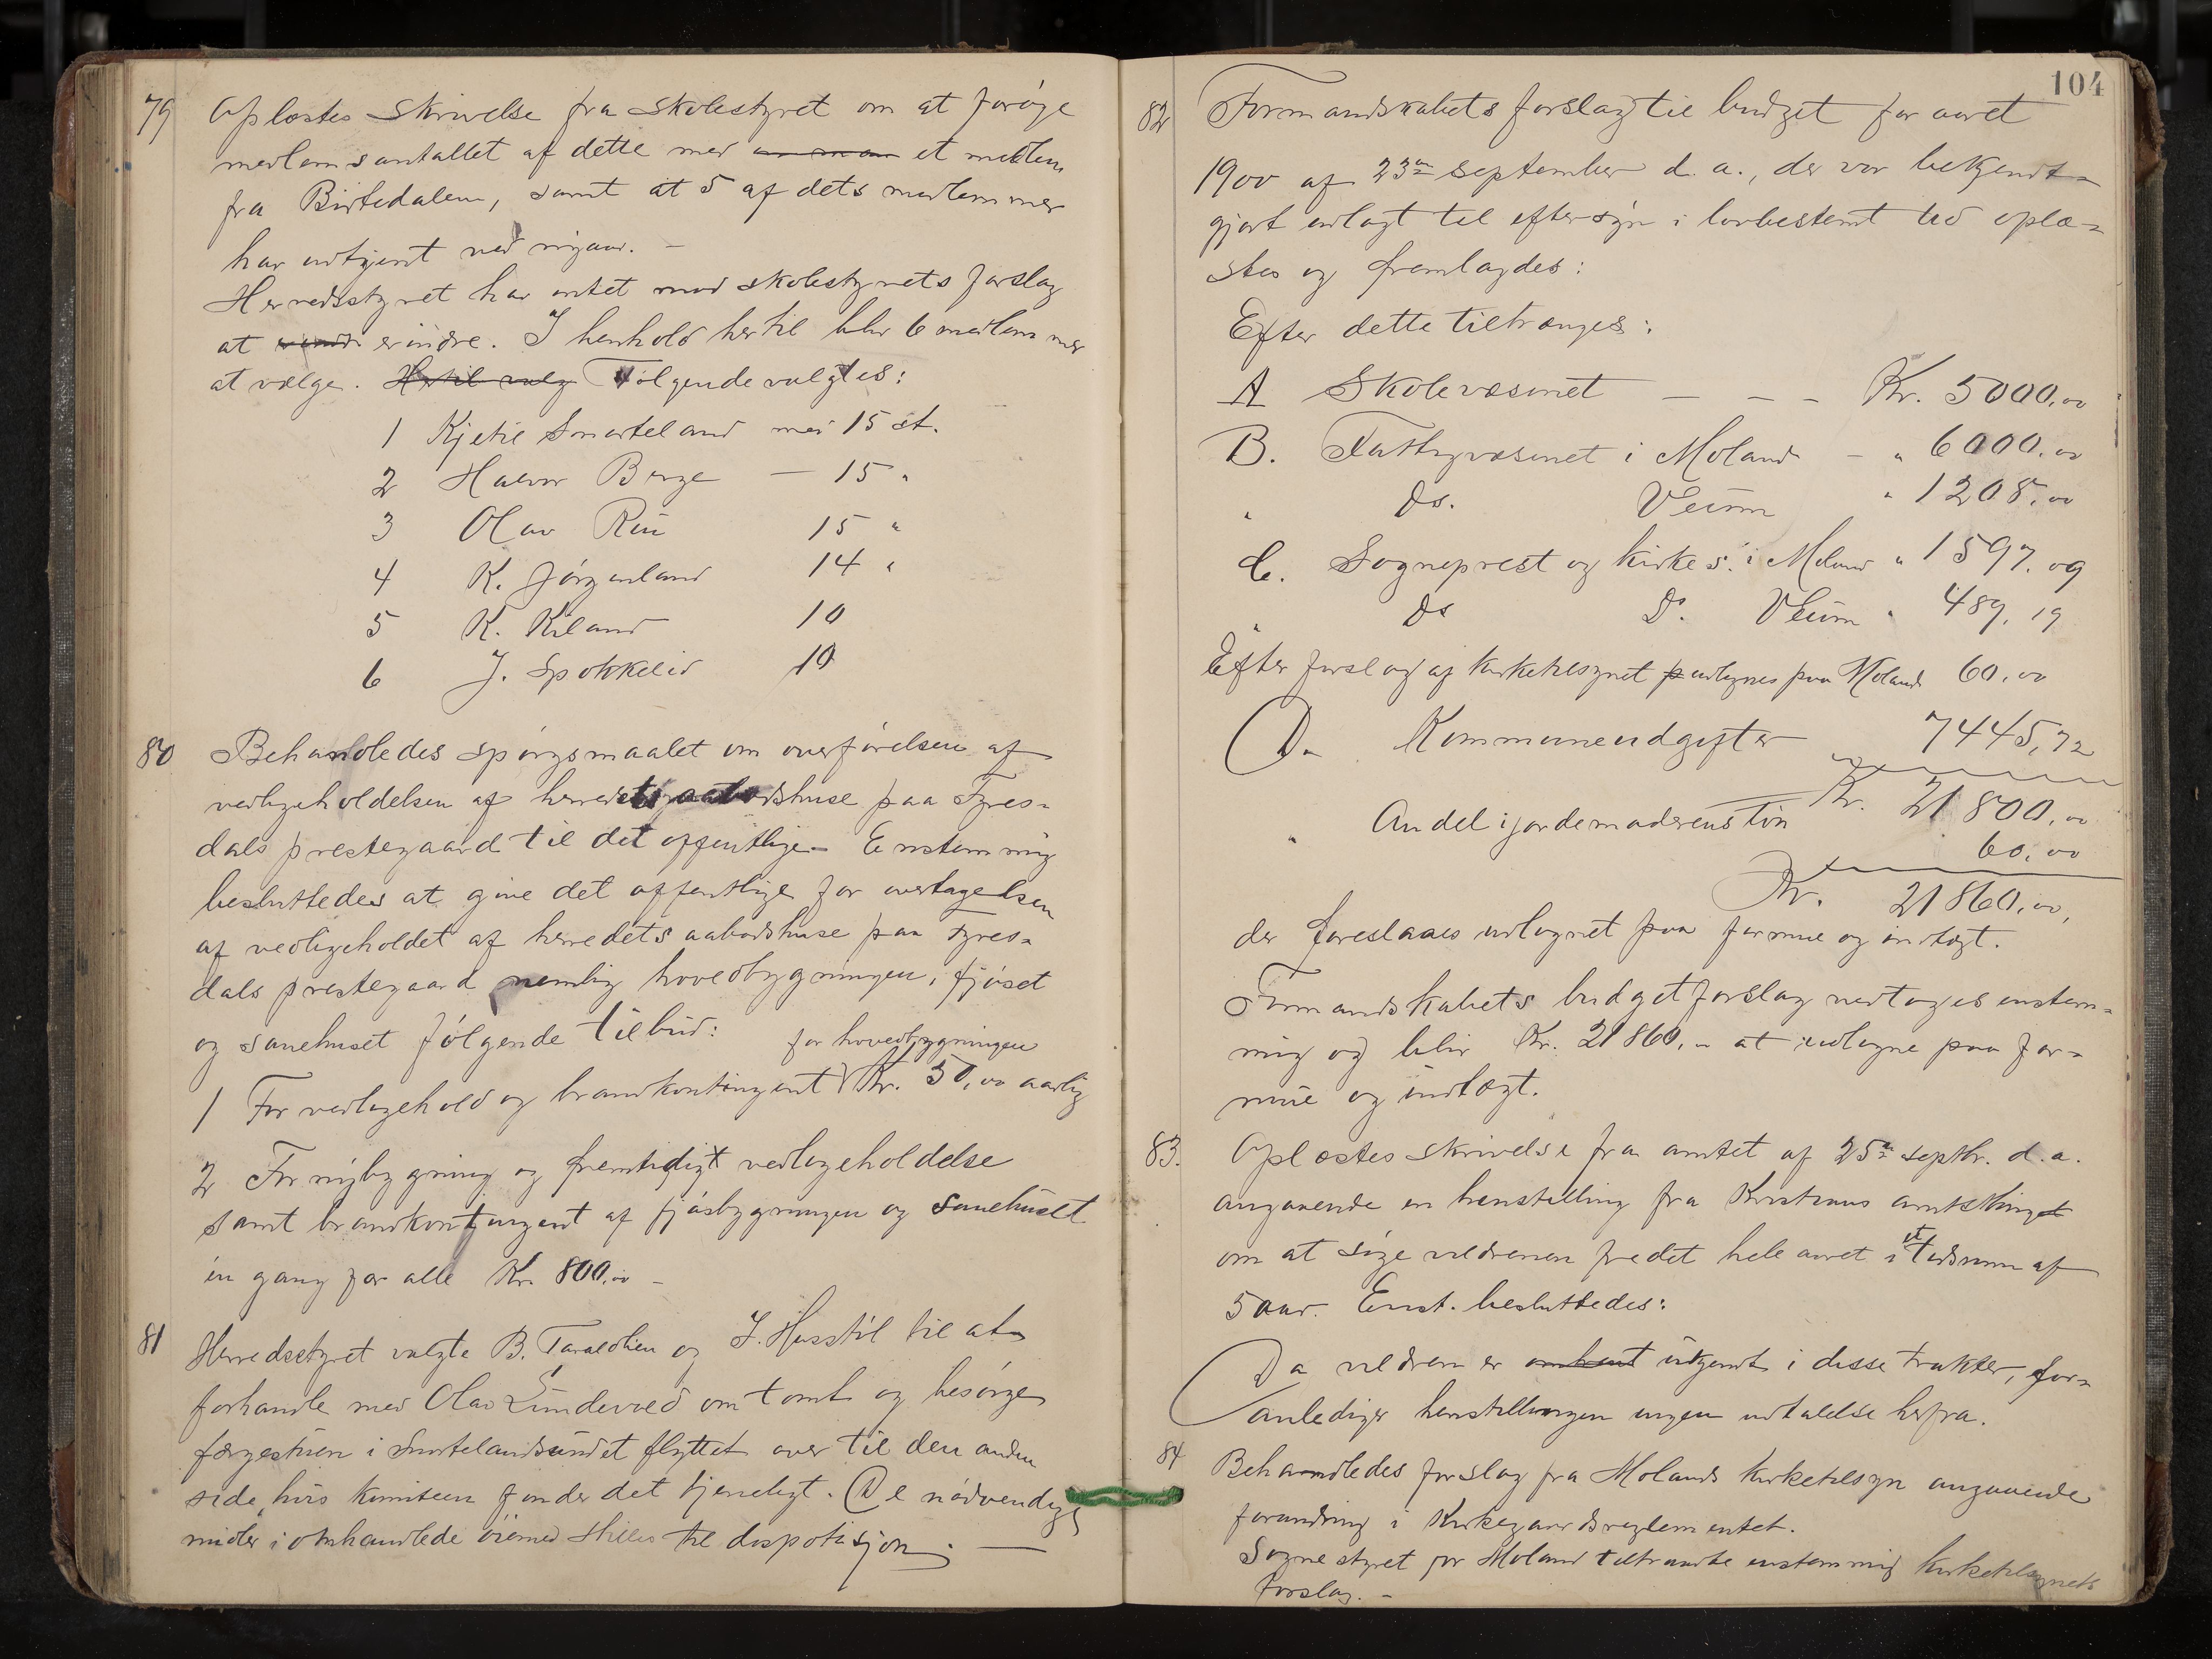 79 Oplæstes skrivelse fra skolestyret om at forøge
medlemsantallet af dette med et medlem
fra Birtedalen, samt at 5 af dets medlemmer
har udtjent ved nyaar. –
Herredsstyret har intet mod skolestyrets forslag
at erindre. I henhold hertil blir 6 medlemmer
at vælge. Hertil valg Følgende valgtes:
1 Kjetil Smarteland med 15 st.
2 Halvor Berge — 15 "
3 Olav Rui 15 "
4 K. Jørgenland 14 "
5 K. Kiland 10
6 J. Spokkelid 10
80 Behandledes spørgsmaalet om overførelsen af
vedligeholdelsen af herredets aabodshuse paa Fyres-
dals prestegaard til det offentlige – Enstemmig
besluttedes at give det offentlige for overtagelsen
af vedligeholdet af herredets aabodshuse paa Fyres-
dals prestegaard nemlig hovedbygningen, fjøset
og sauehuset følgende tilbud:
for hovedbygningen
1 For vedligehold og brandkontingent Kr. 50,00 aarlig
2 For nybygning og fremtidigt vedligeholdelse
samt brandkontingent af fjøsbygningen og sauehuset
én gang for alle Kr. 800,00 –
81 Herredsstyret valgte B. Taraldlien og J. Husstøl til at
forhandle med Olav Lundevold om tomt og besørge
færgestuen i Smartelandsundet flyttet over til den anden
side, hvis komiteen finder det tjeneligt. De nødvendige
midler i omhandlede øiemed stilles til disposisjon. —
104
82 Formandskabets forslag til budget for aaret
1900 af 23de september d. a., der var bekjendt-
gjort udlagt til eftersyn i lovbestemt tid oplæ-
stes og fremlagdes:
Efter dette tiltrænges:
A Skolevæsenet — – – Kr. 5000,00
B. Fattigvæsenet i Moland – " 6000,00
" Do. Veum " 1208,00
C. Sogneprest og kirkes. i Moland " 1597,09
" Do Do. Veum " 489,19
Efter forslag af kirketilsynet udlignes paa Moland 60,00
D. Kommuneudgifter 7445,72
Kr. 21800,00
" Andel i jordemoderens løn 60,00
Kr. 21860,00,
der foreslaaes udlignet paa formue og indtægt.
Formandskabets budgetforslag vedtoges enstem-
mig og blir Kr. 21860,00 at udligne paa for-
mue og indtægt.
83. Oplæstes skrivelse fra amtet af 25de septbr. d. a.
angaaende en henstilling fra Kristians amtsthing
om at søge vildrenen fredet hele aaret i et tidsrum af
5 aar. Enst. besluttedes:
Da vildren er ukjendt i disse trakter, for-
anlediger henstillingen ingen udtalelse herfra.
84 Behandledes forslag fra Molands kirketilsyn angaaende
forandring i kirkegaardsreglementet.
Sognestyret for Moland tiltraadte enstemmig kirketilsynets
forslag. –